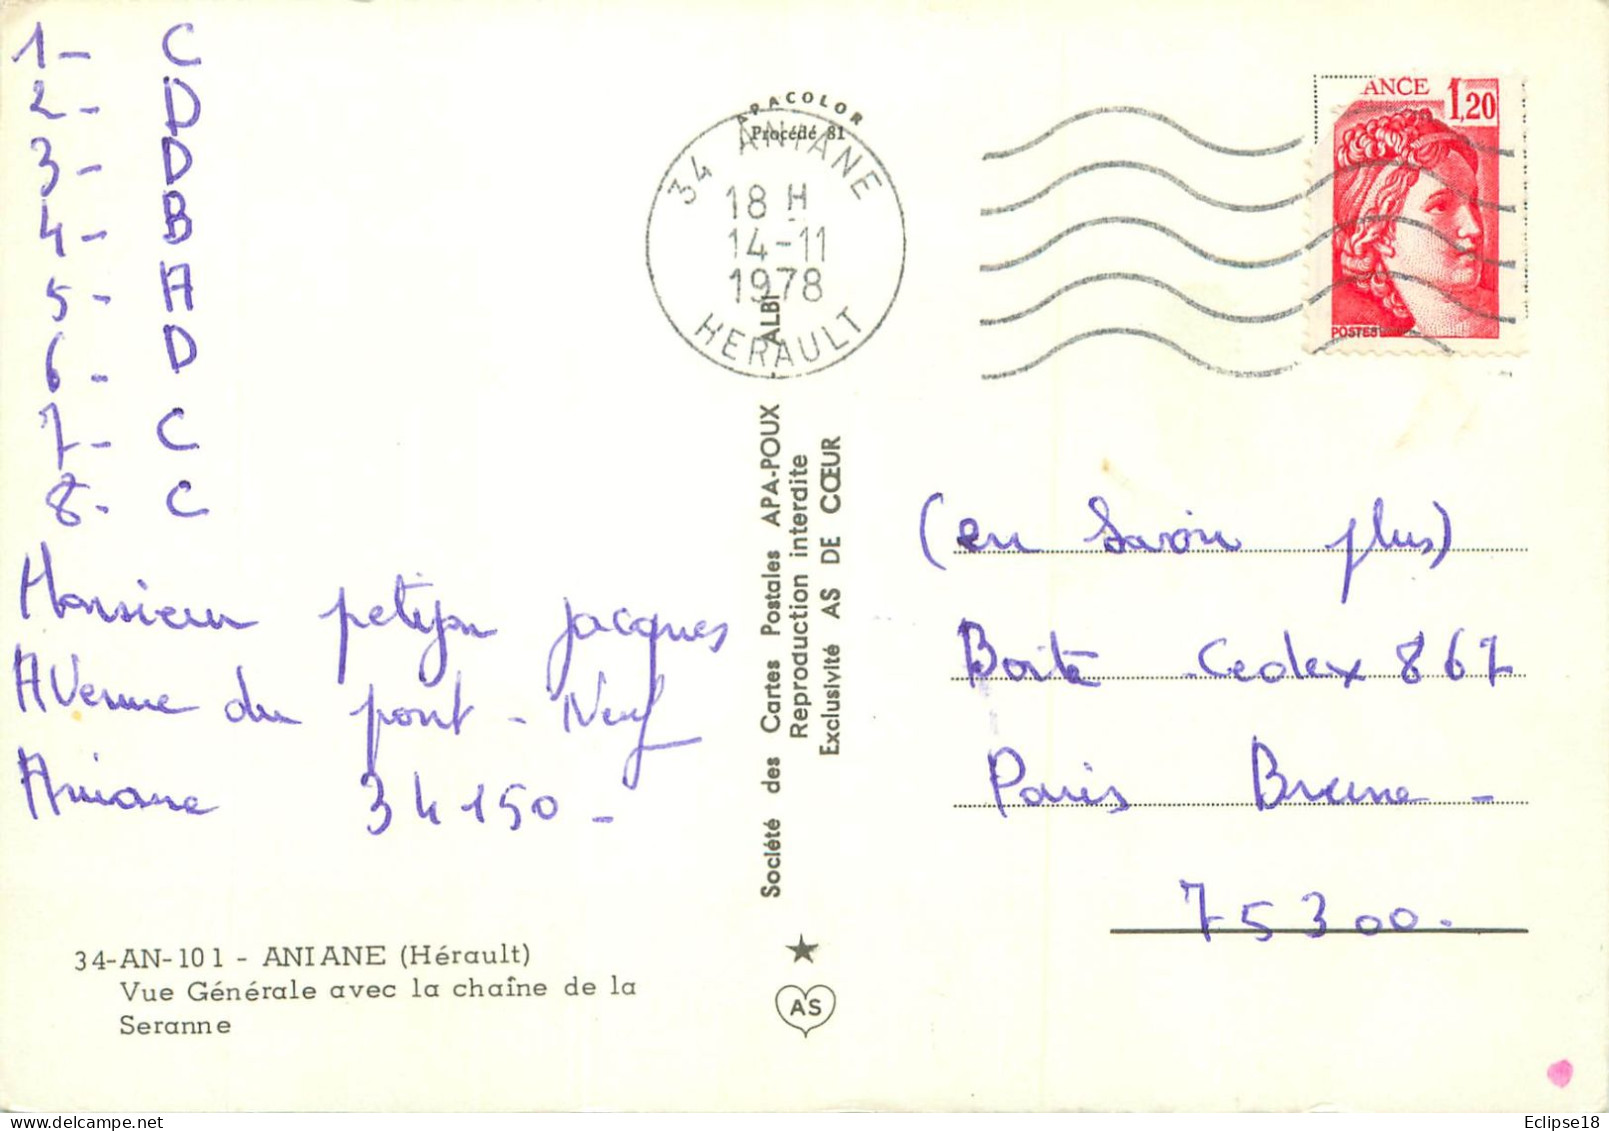 1- C
2- D
3- D
4- B
5- A
6- D
7- C
8- C
Monsieur petijan jacques
AVenue du pont-Neuf
Aniane 34150-
34-AN-101 - ANIANE (Hérault)
Vue Générale avec la chaîne de la
Seranne
APACOLOR
Procédé 81
34 ANIANE
18 H
14-11
1978
HERAULT
Société des Cartes Postales APA-POUX - ALBI
Reproduction interdite
Exclusivité AS DE CŒUR
AS
ANCE 1,20
POSTES
(en Savoir plus)
Boite -Cedex 867
Paris Brune -
75300-
Eclipse18